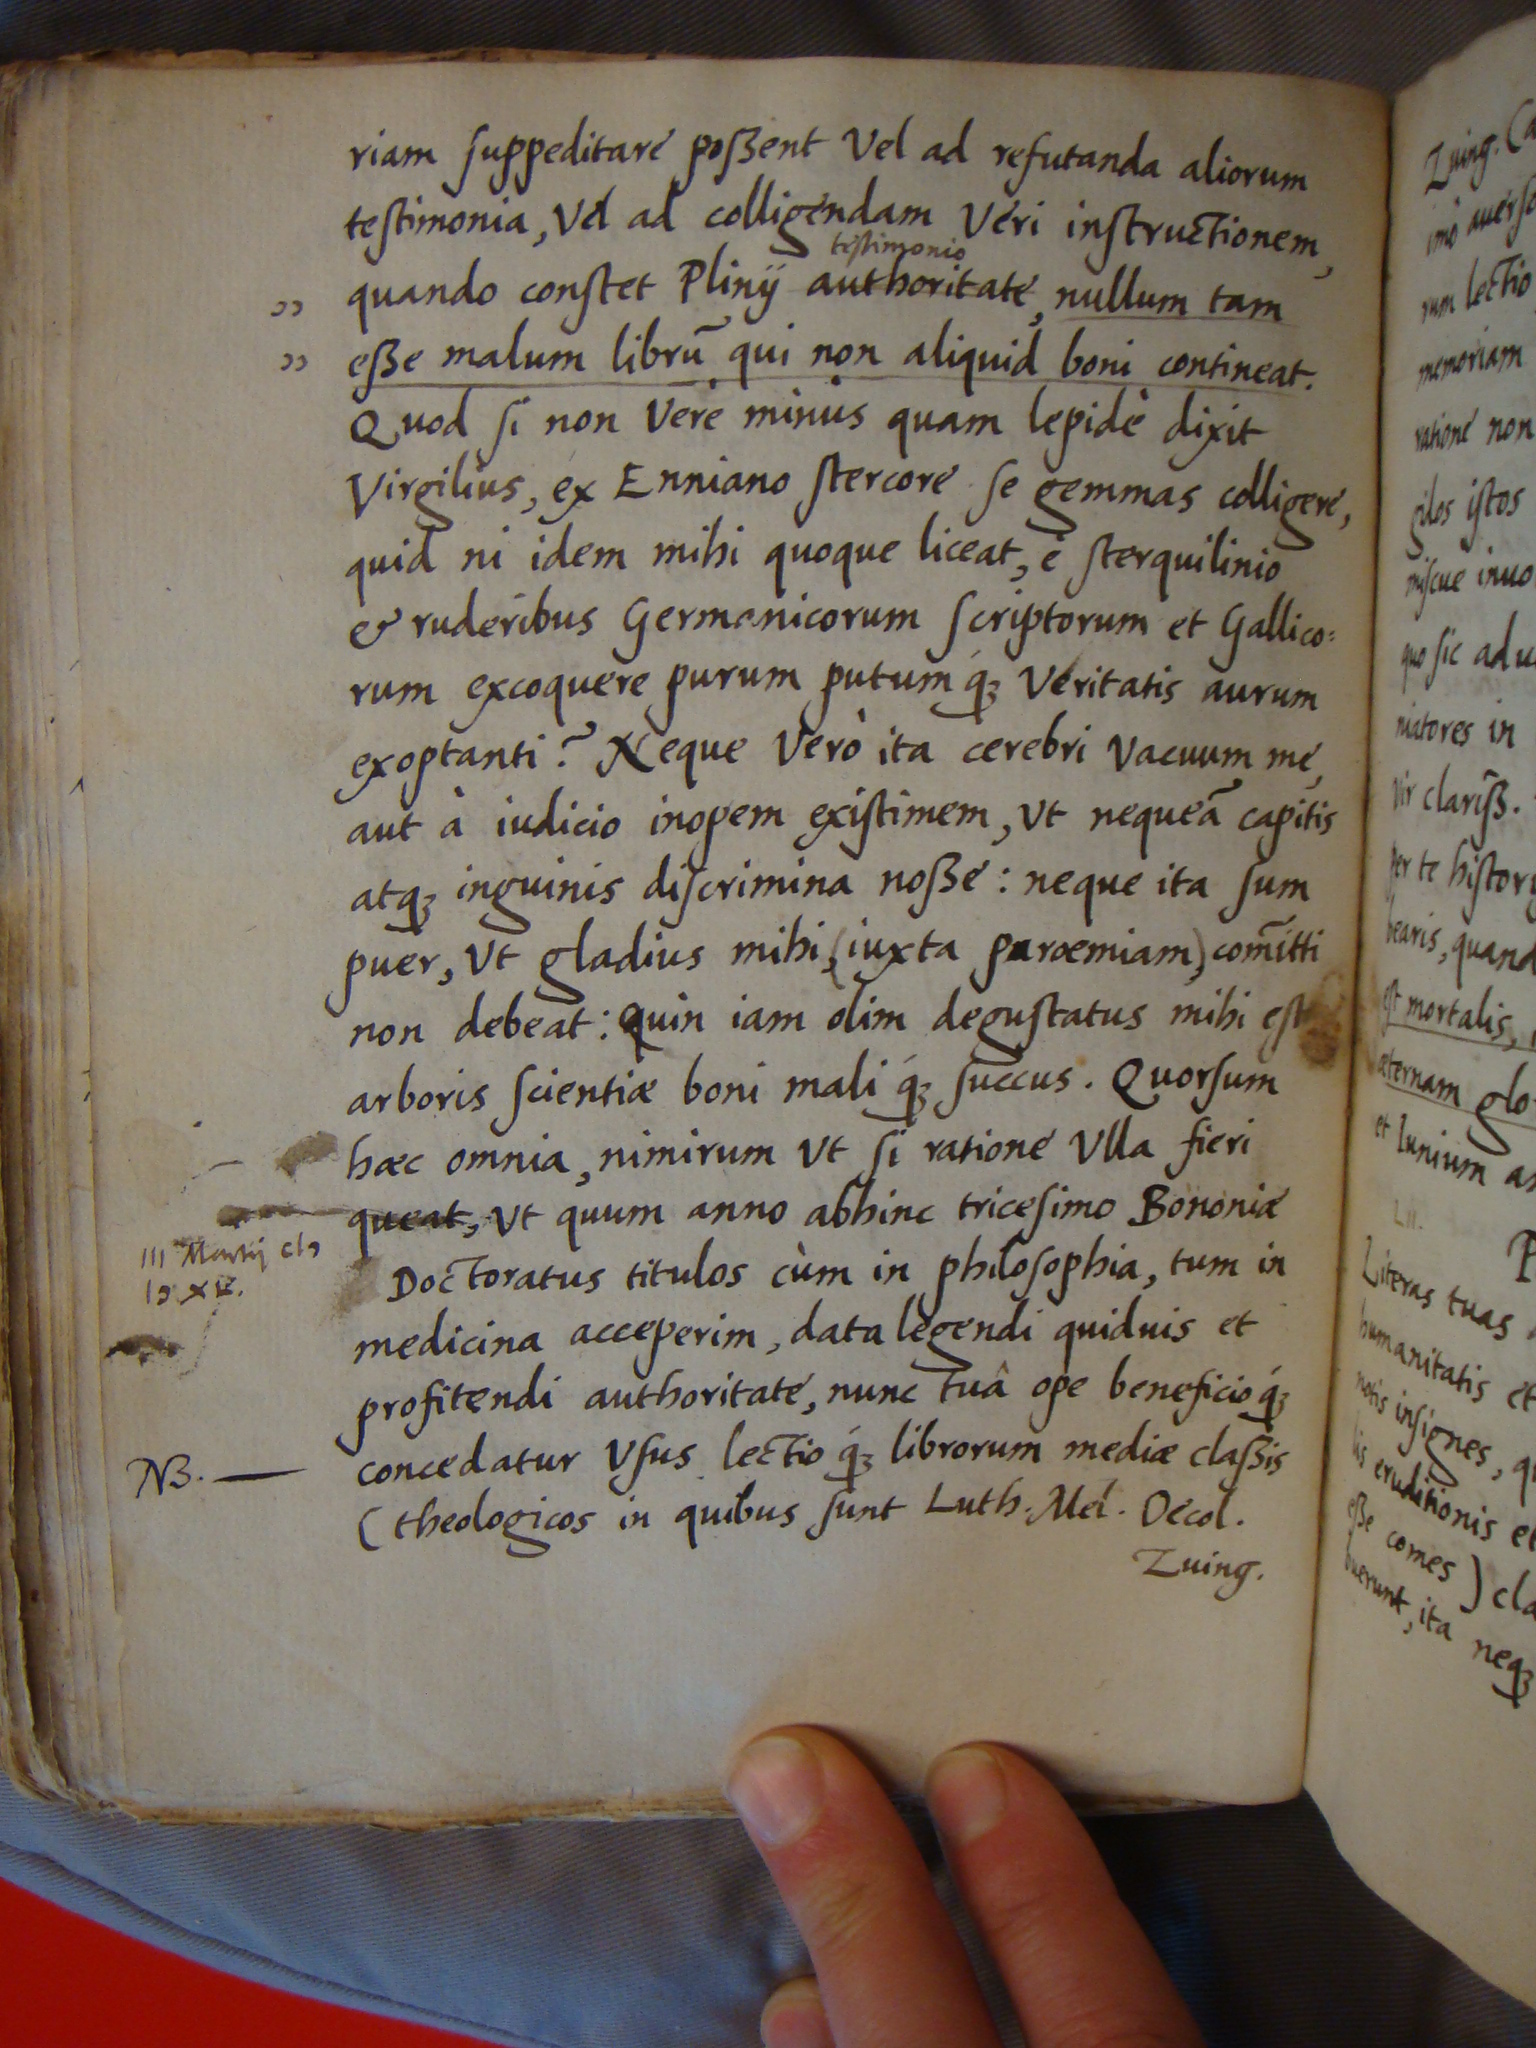 riam suppeditare poßent Vel ad refutanda aliorum
testimonia, Vel ad colligendam Veri instructionem,
testimonio
quando constet Plinij authoritate, nullum tam
eße malum librũ qui non aliquid boni contineat.
Quod si non Vere minùs quam lepidè dixit
Virgilius, ex Enniano stercore se gemmas colligere,
quid ni idem mihi quoque liceat, è sterquilinio
& ruderibus Germanicorum scriptorum et Gallico:
rum excoquere purum putumq́; Veritatis aurum
exoptanti? Neque Verò ita cerebri vacuum me,
aut à iudicio inopem existimem, Ut nequeã capitis
atq; inguinis discrimina noße: neque ita sum
puer, Ut gladius mihi, (iuxta parœmiam) com̃itti
non debeat: Quin iam olim degustatus mihi est
arboris scientiæ boni maliq́; succus. Quorsum
hæc omnia, nimirum Ut si ratione Ulla fieri
queat, Ut quum anno abhinc tricesimo Bononiæ
III Martij cIɔ
Iɔ XV.
Doctoratus titulos cùm in philosophia, tum in
medicina acceperim, data legendi quiduis et
profitendi authoritate, nunc tuâ ope beneficioq́;
NB. —
concedatur Usus lectioq́; librorum mediæ claßis
(theologicos in quibus sunt Luth. Mel. Oecol.
Zuing.
Zuing.
imò auersor
rum lectio
memoriam
ratione non
gilos istos
miscue inuo
quo sic adu
niatores in
Vir clariß.
per te histor
bearis, quand
est mortalis,
æternam glo
et Iunium
LII.
P
Literas tuas
humanitatis et
notis insignes, q
lis eruditionis et
eße comes) cla
buerunt, ita neq;